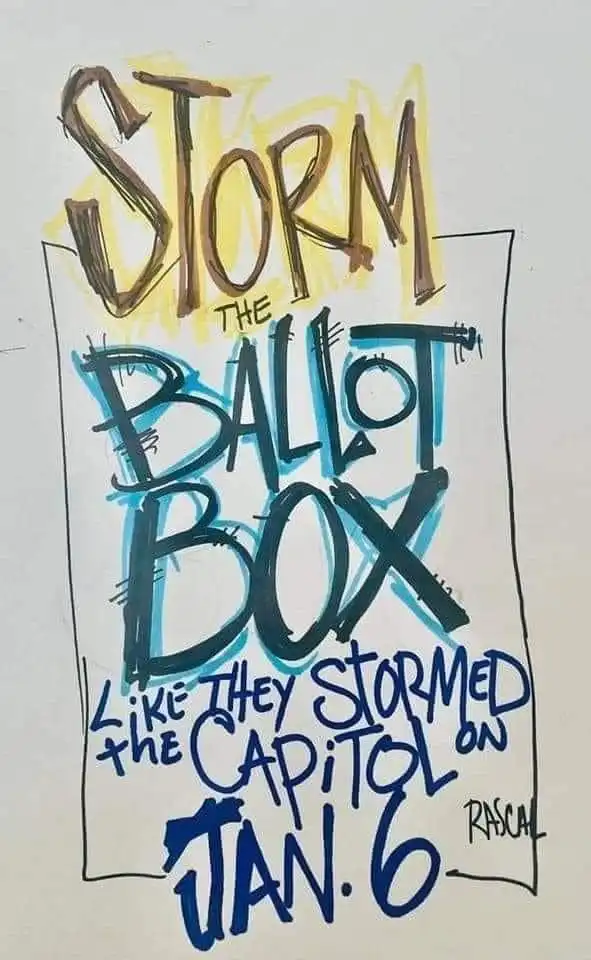 STORM
THE
BALLOT
BOX
LiKE THEY STORMED
the CAPiTOL ON
JAN. 6
RASCAL